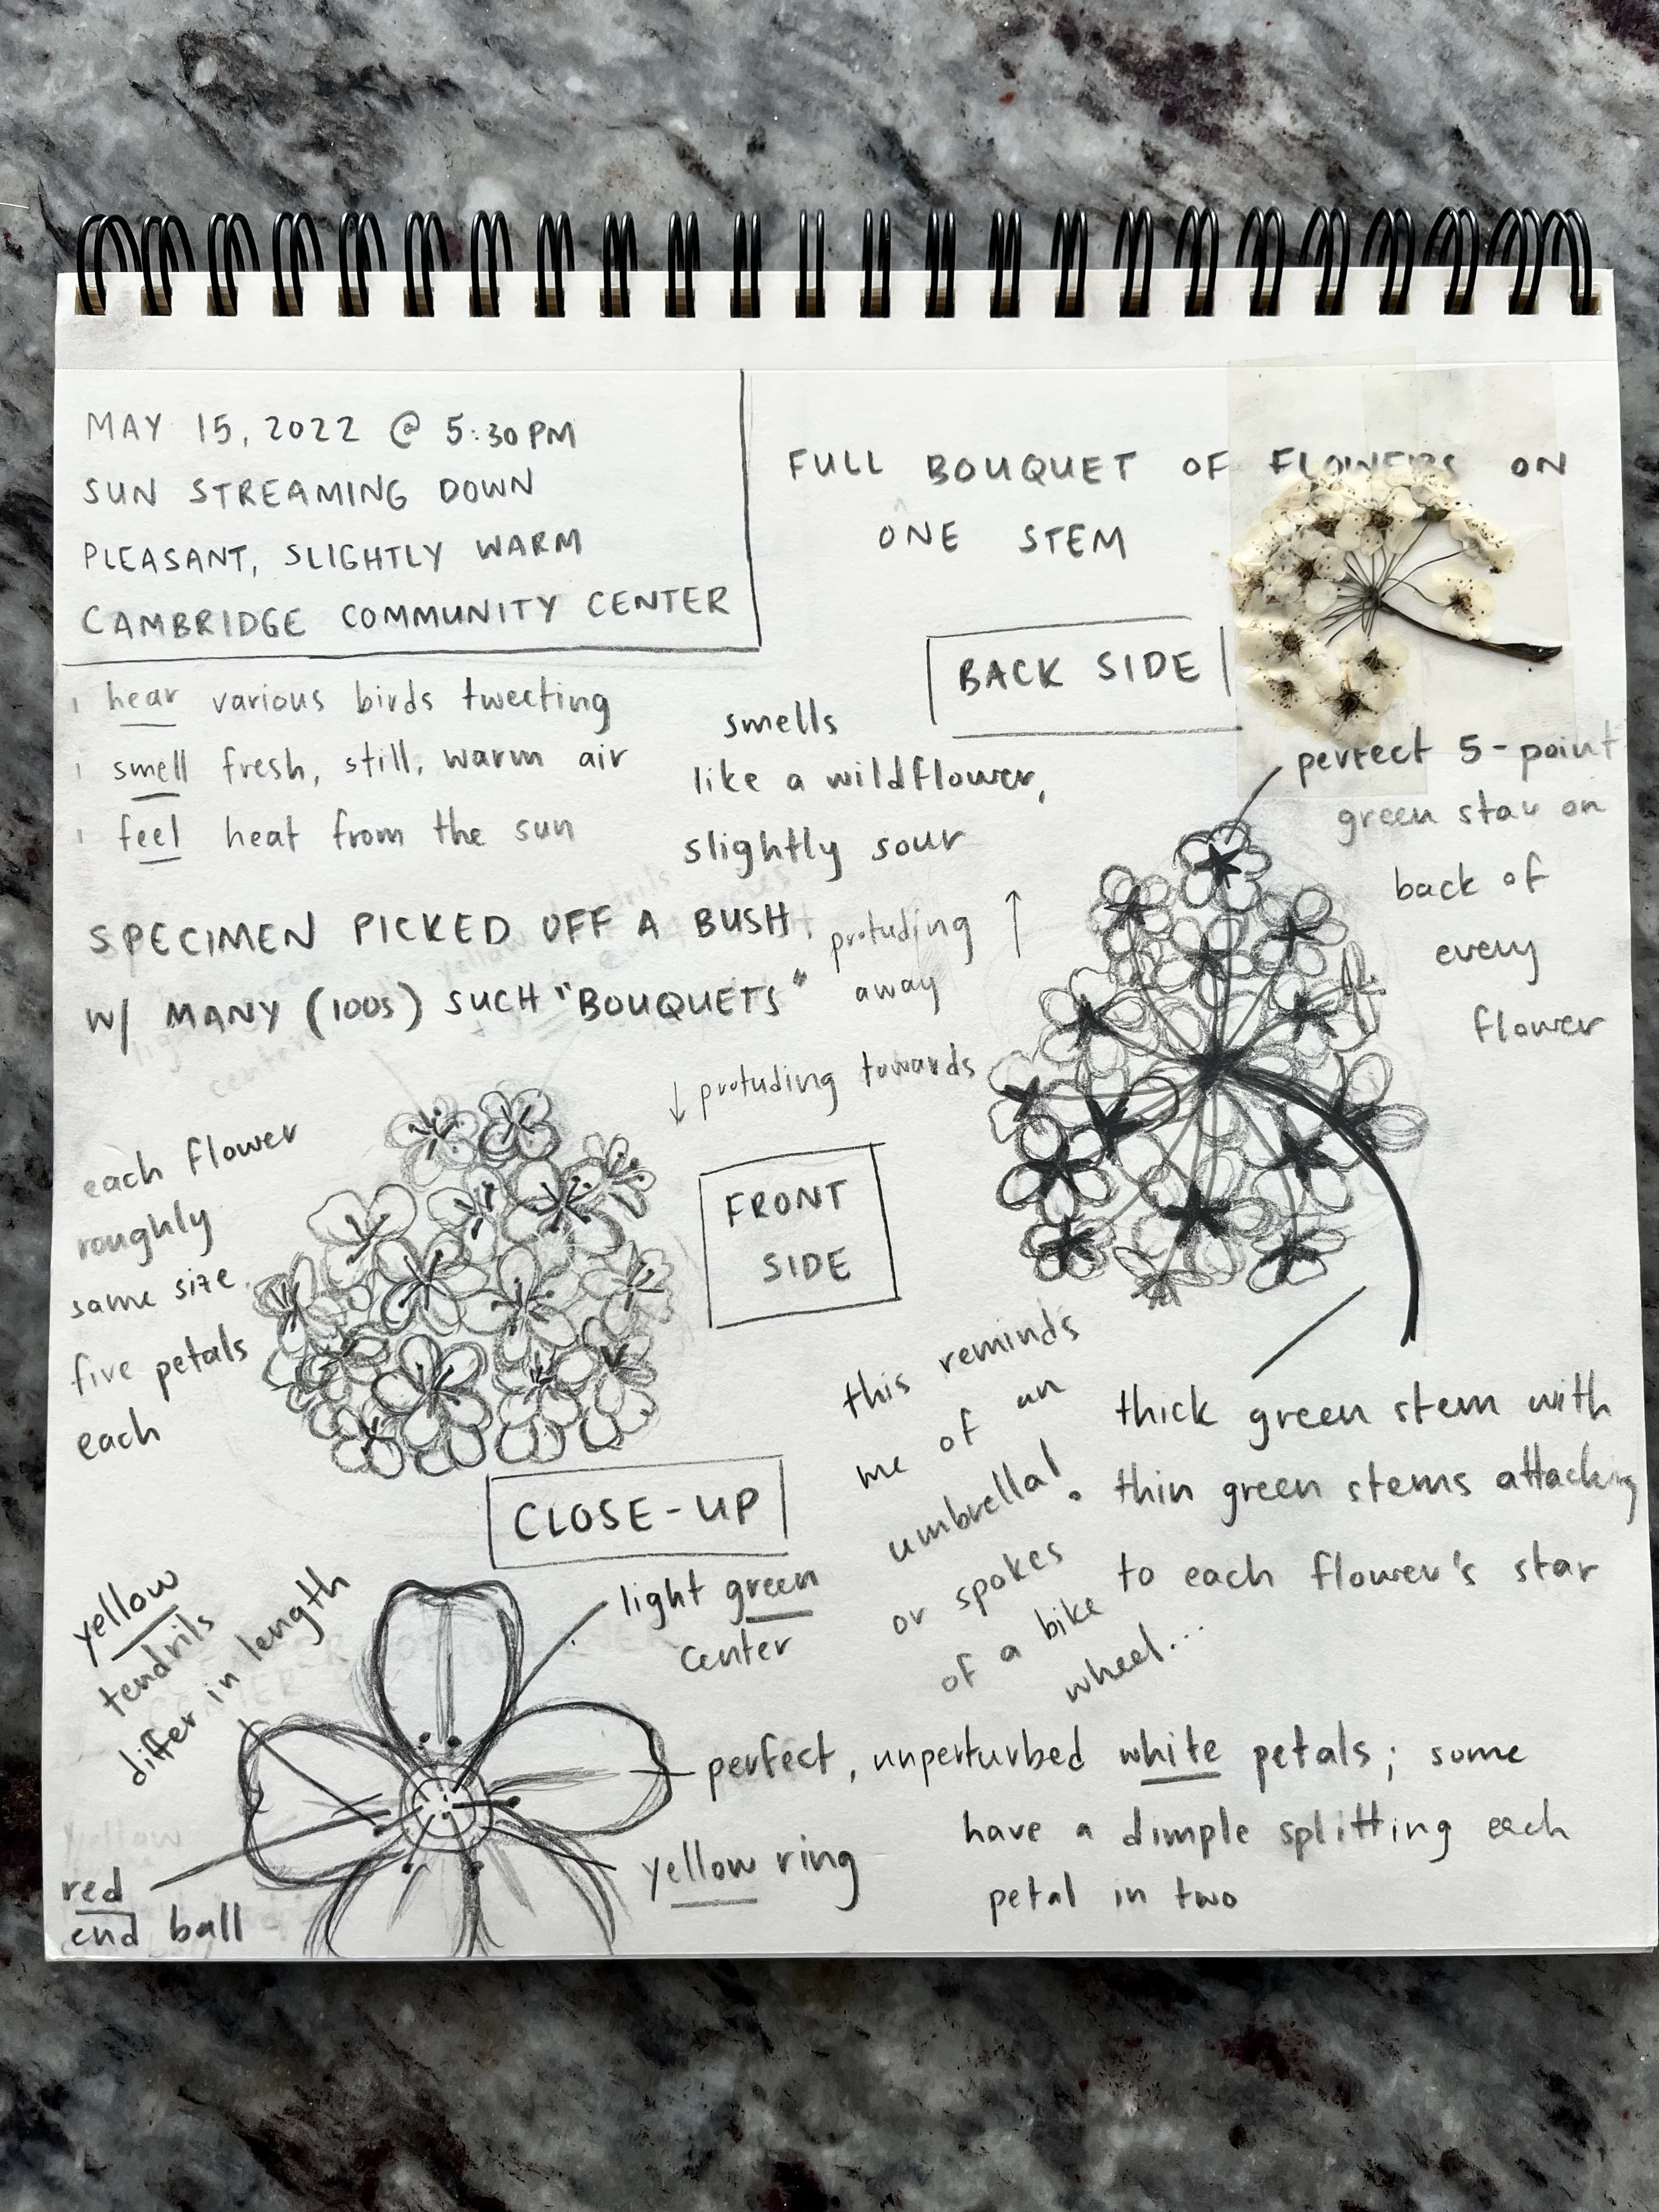 MAY 15, 2022 @ 5:30 PM
SUN STREAMING DOWN
PLEASANT, SLIGHTLY WARM
CAMBRIDGE COMMUNITY CENTER
FULL BOUQUET OF FLOWERS ON
ONE STEM
BACK SIDE
i hear various birds tweeting
i smell fresh, still, warm air
i feel heat from the sun
smells
like a wildflower,
slightly sour
perfect 5-point
green star on
back of
every
flower
SPECIMEN PICKED OFF A BUSH
W/ MANY (100s) SUCH "BOUQUETS"
protuding
away
↑
↓ protuding towards
each flower
roughly
same size
five petals
each
FRONT
SIDE
this reminds
me of an
umbrella!
or spokes
of a bike
wheel...
thick green stem with
thin green stems attaching
to each flower's star
CLOSE-UP
yellow
tendrils
differ in length
light green
center
perfect, unperturbed white petals; some
have a dimple splitting each
petal in two
yellow ring
red
end ball